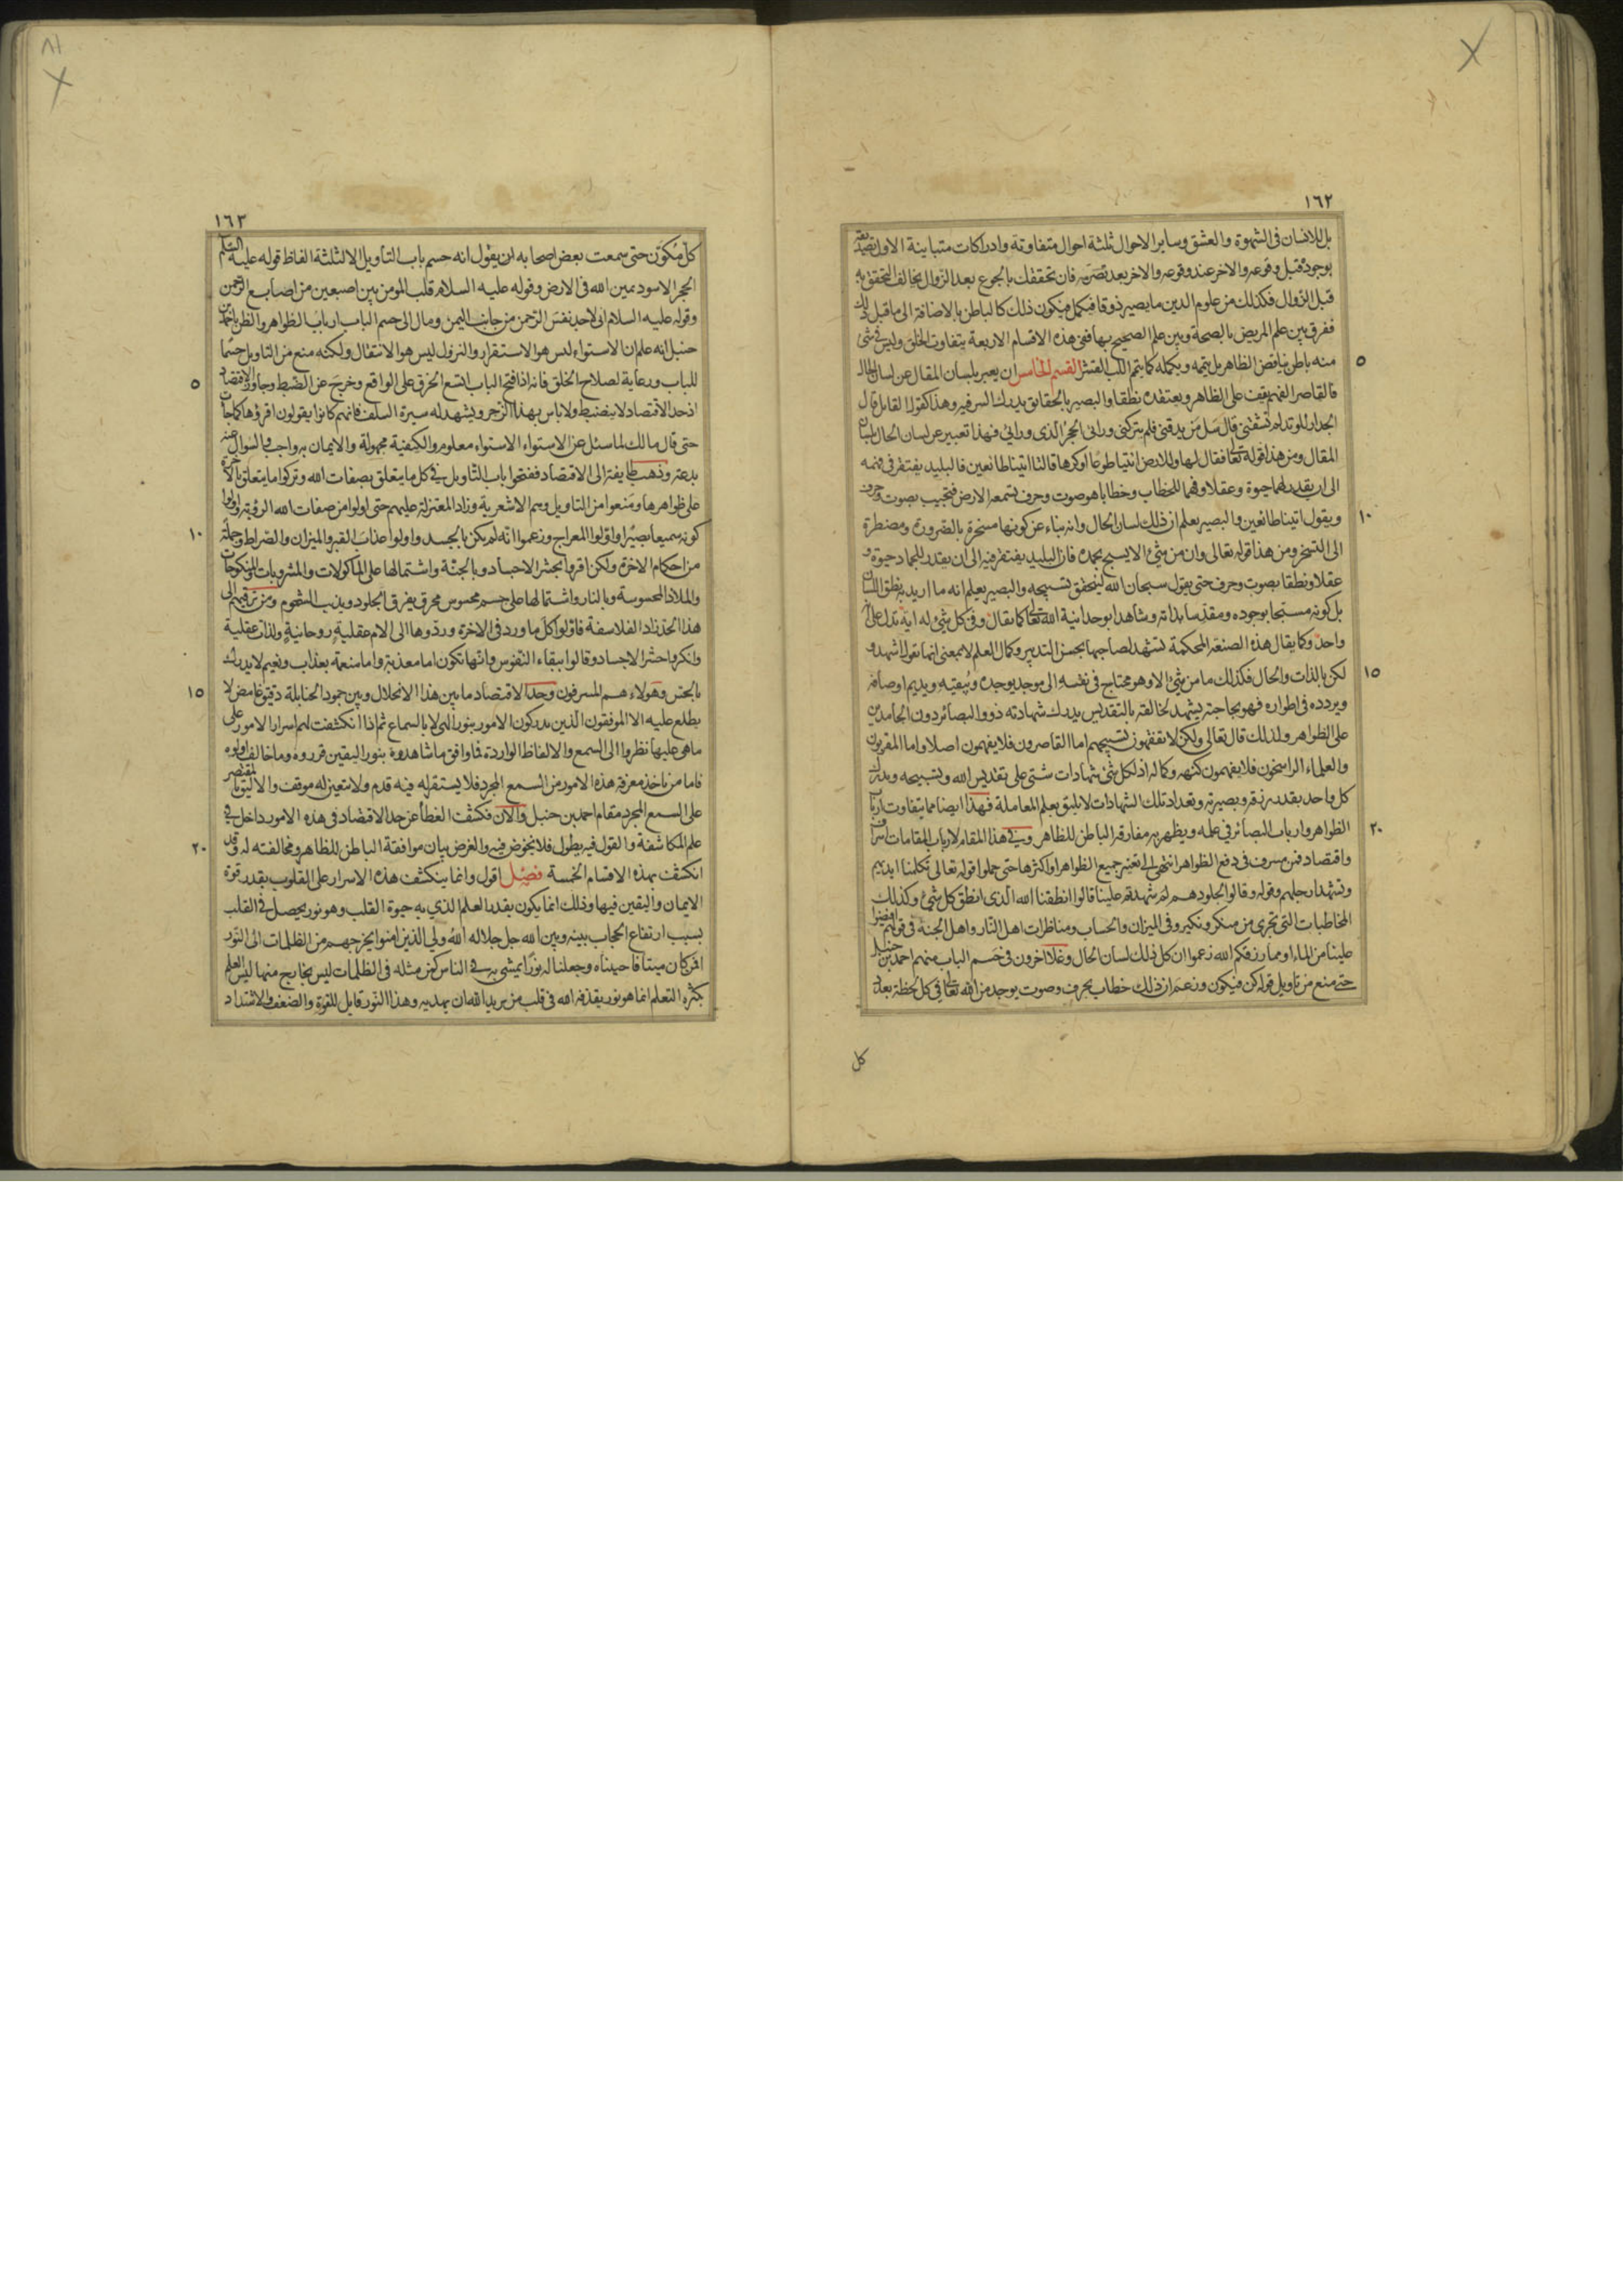 ١٦٢
بل للانسان فى الشهوة والعشق وساير الاحوال ثلثة احوال متفاوتة وادراكات متباينة الاول تصديقه
بوجوده قبل وقوعه والاخر عند وقوعه والاخر بعد تصرمه فان تحققك بالجوع بعد الزوال يخالف التحقق به
قبل الزوال فكذلك من علوم الدين ما يصير ذوقا فيكمل فيكون ذلك كالباطن بالاضافة الى ما قبل ذلك
ففرق بين علم المريض بالصحة وبين علم الصحيح بها ففى هذه الاقسام الاربعة يتفاوت الخلق وليس فى شئ
٥
منه باطن يناقض الظاهر بل يتمه ويكمله كما يتم اللب القشر القسم الخامس ان يعبر بلسان المقال عن لسان الحال
فالقاصر الفهم يقف على الظاهر ويعتقده نطقا والبصير بالحقايق يدرك السر فيه وهذا كقول القايل قال
الجدار للوتد لم تشقنى قال سل من يدقنى فلم يتركنى ورائى الحجر الذى ورائى فهذا تعبير عن لسان الحال بلسان
المقال ومن هذا قوله تعالى فقال لها وللارض ائتيا طوعا او كرها قالتا اتينا طائعين فالبليد يفتقر فى فهمه
الى ان يقدر لهما حيوة وعقلا وفهما للخطاب وخطابا هو صوت وحرف تسمعه الارض فتجيب بصوت وحرف
١٠
ويقول اتينا طائعين والبصير يعلم ان ذلك لسان الحال وانه بناء عن كونها مسخرة بالضرورة ومضطرة
الى التسخر ومن هذا قوله تعالى وان من شئ الا يسبح بحمده فان البليد يفتقر فيه الى ان يقدر للجماد حيوة و
عقلا ونطقا بصوت وحرف حتى يقول سبحان الله ليتحقق تسبيحه والبصير يعلم انه ما اريد به نطق اللسان
بل كونه مسبحا بوجوده ومقدسا بذاته وشاهدا بوحدانية الله تعالى كما يقال وفى كل شئ له اية تدل على انه
واحد وكما يقال هذه الصنعة المحكمة تشهد لصاحبها بحسن التدبير وكمال العلم لا بمعنى انها تقول اشهد و
١٥
لكن بالذات والحال فكذلك ما من شئ الا وهو محتاج فى نفسه الى موجد يوجده ويبقيه ويديم اوصافه
ويردده فى اطواره فهو بحاجته يشهد لخالقه بالتقديس يدرك شهادته ذوو البصائر دون الجامدين
على الظواهر ولذلك قال تعالى ولكن لا تفقهون تسبيحهم اما القاصرون فلا يفهمون اصلا واما المقربون
والعلماء الراسخون فلا يفهمون كنهه وكماله اذ لكل شئ شهادات شتى على تقديس الله وتسبيحه ويدرك
كل واحد بقدر رزقه وبصيرته وتعداد تلك الشهادات لا يليق بعلم المعاملة فهذا ايضا مما يتفاوت ارباب
٢٠
الظواهر وارباب البصائر فى علمه ويظهر به مفارقة الباطن للظاهر وفى هذا المقام لارباب المقامات اسراف
واقتصاد فمن مسرف فى دفع الظواهر انتهى الى تغيير جميع الظواهر او اكثرها حتى حملوا قوله تعالى تكلمنا ايديهم
وتشهد ارجلهم وقوله وقالوا لجلودهم لم شهدتم علينا قالوا انطقنا الله الذى انطق كل شئ وكذلك
المخاطبات التى تجرى من منكر ونكير وفى الميزان والحساب ومناظرات اهل النار واهل الجنة فى قولهم افيضوا
علينا من الماء او مما رزقكم الله زعموا ان كل ذلك لسان الحال وغلا اخرون فى حسم الباب منهم احمد بن حنبل
حتى منع من تاويل قوله كن فيكون وزعم ان ذلك خطاب بحرف وصوت يوجد من الله تعالى فى كل لحظة بعدد
كل
١٦٣
كل مكوّن حتى سمعت بعض اصحابه ان يقول انه حسم باب التأويل الا لثلثة الفاظ قوله عليه السلم
الحجر الاسود يمين الله فى الارض وقوله عليه السلام قلب المومن بين اصبعين من اصابع الرحمن
وقوله عليه السلام انى لاجد نفس الرحمن من جانب اليمن ومال الى حسم الباب ارباب الظواهر والظن باحمد بن
حنبل انه علم ان الاستواء ليس هو الاستقرار والنزول ليس هو الانتقال ولكنه منع من التاويل حسما
٥
للباب ورعاية لصلاح الخلق فانه اذا فتح الباب اتسع الخرق على الواقع وخرج عن الضبط وجاوز الاقتصاد
اذ حد الاقتصاد لا ينضبط ولا باس بهذا الزجر ويشهد له سيرة السلف فانهم كانوا يقولون اقروها كما جأت
حتى قال مالك لما سئل عن الاستواء الاستواء معلوم والكيفية مجهولة والايمان به واجب والسوال عنه
بدعة وذهب طايفة الى الاقتصاد ففتحوا باب التأويل فى كل ما يتعلق بصفات الله وتركوا ما يتعلق بالاخرة
على ظواهرها ومنعوا من التاويل وهم الاشعرية وزاد المعتزلة عليهم حتى اولوا من صفات الله الرؤية واولوا
١٠
كونه سميعا بصيرا واولوا المعراج وزعموا انه لم يكن بالجسد واولوا عذاب القبر والميزان والصراط وجملة
من احكام الاخرة ولكن اقروا بحشر الاجساد وبالجنة واشتمالها على الماكولات والمشروبات والمنكوحات
والملاذ المحسوسة وبالنار واشتمالها على جسم محسوس محرق يفرق الجلود ويذيب الشحوم ومن ترقيهم الى
هذا الحد زاد الفلاسفة فاولوا كل ما ورد فى الاخرة وردوها الى الام عقلية روحانية ولذات عقلية
وانكروا حشر الاجساد وقالوا ببقاء النفوس وانها تكون اما معذبة واما منعمة بعذاب ونعيم لا يدرك
١٥
بالحس وهولاء هم المسرفون وحد الاقتصاد ما بين هذا الانحلال وبين جمود الحنابلة دقيق غامض لا
يطلع عليه الا الموفقون الذين يدركون الامور بنور الهى لا بالسماع ثم اذا انكشفت لهم اسرار الامور على
ما هى عليها نظروا الى السمع والالفاظ الواردة فما وافق ما شاهدوه بنور اليقين قرروه وما خالف اولوه
فاما من ياخذ معرفة هذه الامور من السمع المجرد فلا يستقر له فيه قدم ولا يتعين له موقف والاليق بالمقتصر
على السمع المجرد مقام احمد بن حنبل والان فكشف الغطأ عن حد الاقتصاد فى هذه الامور داخل فى
٢٠
علم المكاشفة والقول فيه يطول فلا نخوض فيه والغرض بيان موافقة الباطن للظاهر ومخالفته له وقد
انكشف بهذه الاقسام الخمسة فصل اقول وانما ينكشف هذه الاسرار على القلوب بقدر قوة
الايمان واليقين فيها وذلك انما يكون بقدر العلم الذي به حيوة القلب وهو نور يحصل فى القلب
بسبب ارتفاع الحجاب بينه وبين الله جل جلاله الله ولي الذين امنوا يخرجهم من الظلمات الى النور
افمن كان ميتا فاحييناه وجعلنا له نورا يمشى به فى الناس كمن مثله فى الظلمات ليس بخارج منها ليس العلم
بكثرة التعلم انما هو نور يقذفه الله فى قلب من يريد الله ان يهديه وهذا النور قابل للقوة والضعف والاشتداد